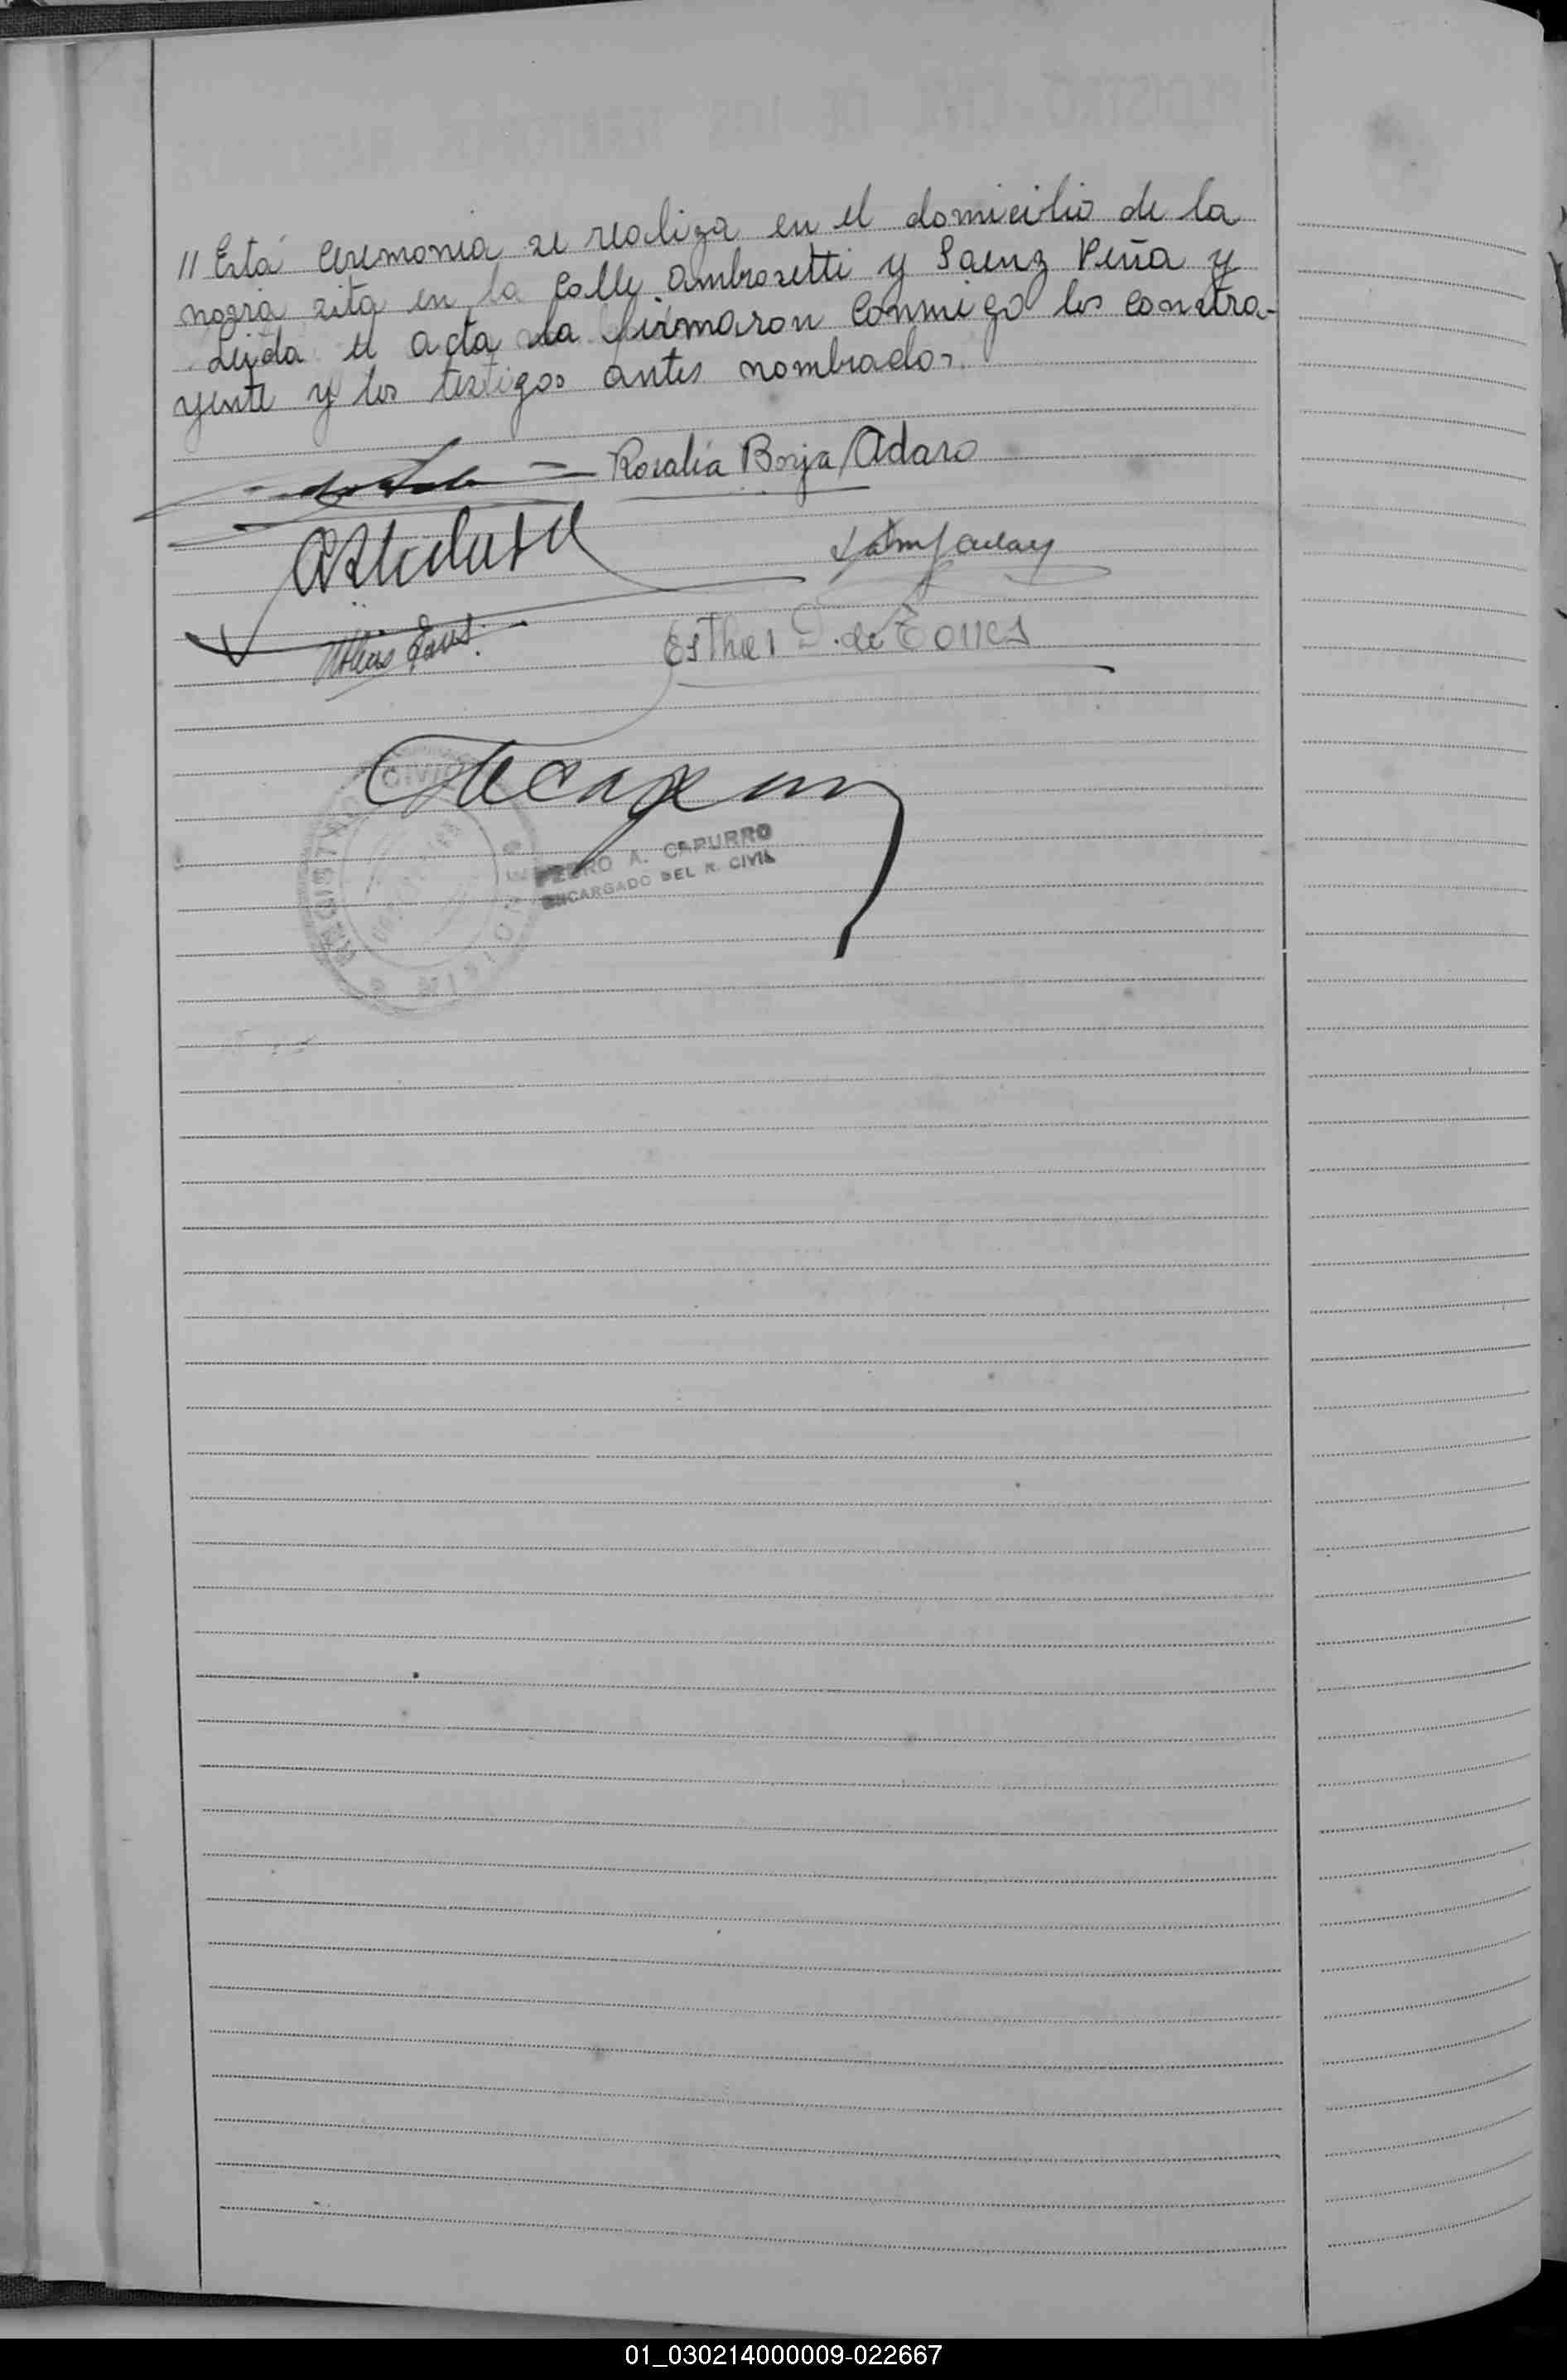 // Esta ceremonia se realiza en el domicilio de la
nogia sita en la calle Ambrosetti y Saenz Peña y
Leida el acta la firmaron conmigo los contra-
yente y los testigos antes nombrados.
Rosalía Borja Adaro
Esther D. de Torres
REGISTRO CIVIL
PEDRO A. CAPURRO
ENCARGADO DEL R. CIVIL
01_030214000009-022667